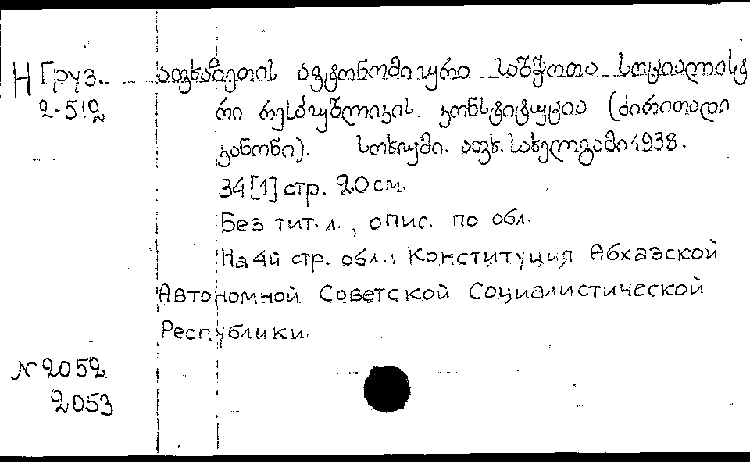 Н Груз. აფხაზეთის ავტონომიური საბჭოთა სოციალისტ
2-512 რი რესპუბლიკის კონსტიტუცია (ძირითადი
კანონი). სოხუმი. აფხ. სახელგამი 1938.
34 [1] стр. 20 см.
Без тит. л., опис. по обл.
На 4й стр. обл.: Конституция Абхазской
Автономной Советской Социалистической
Республики.
№ 2052
2053